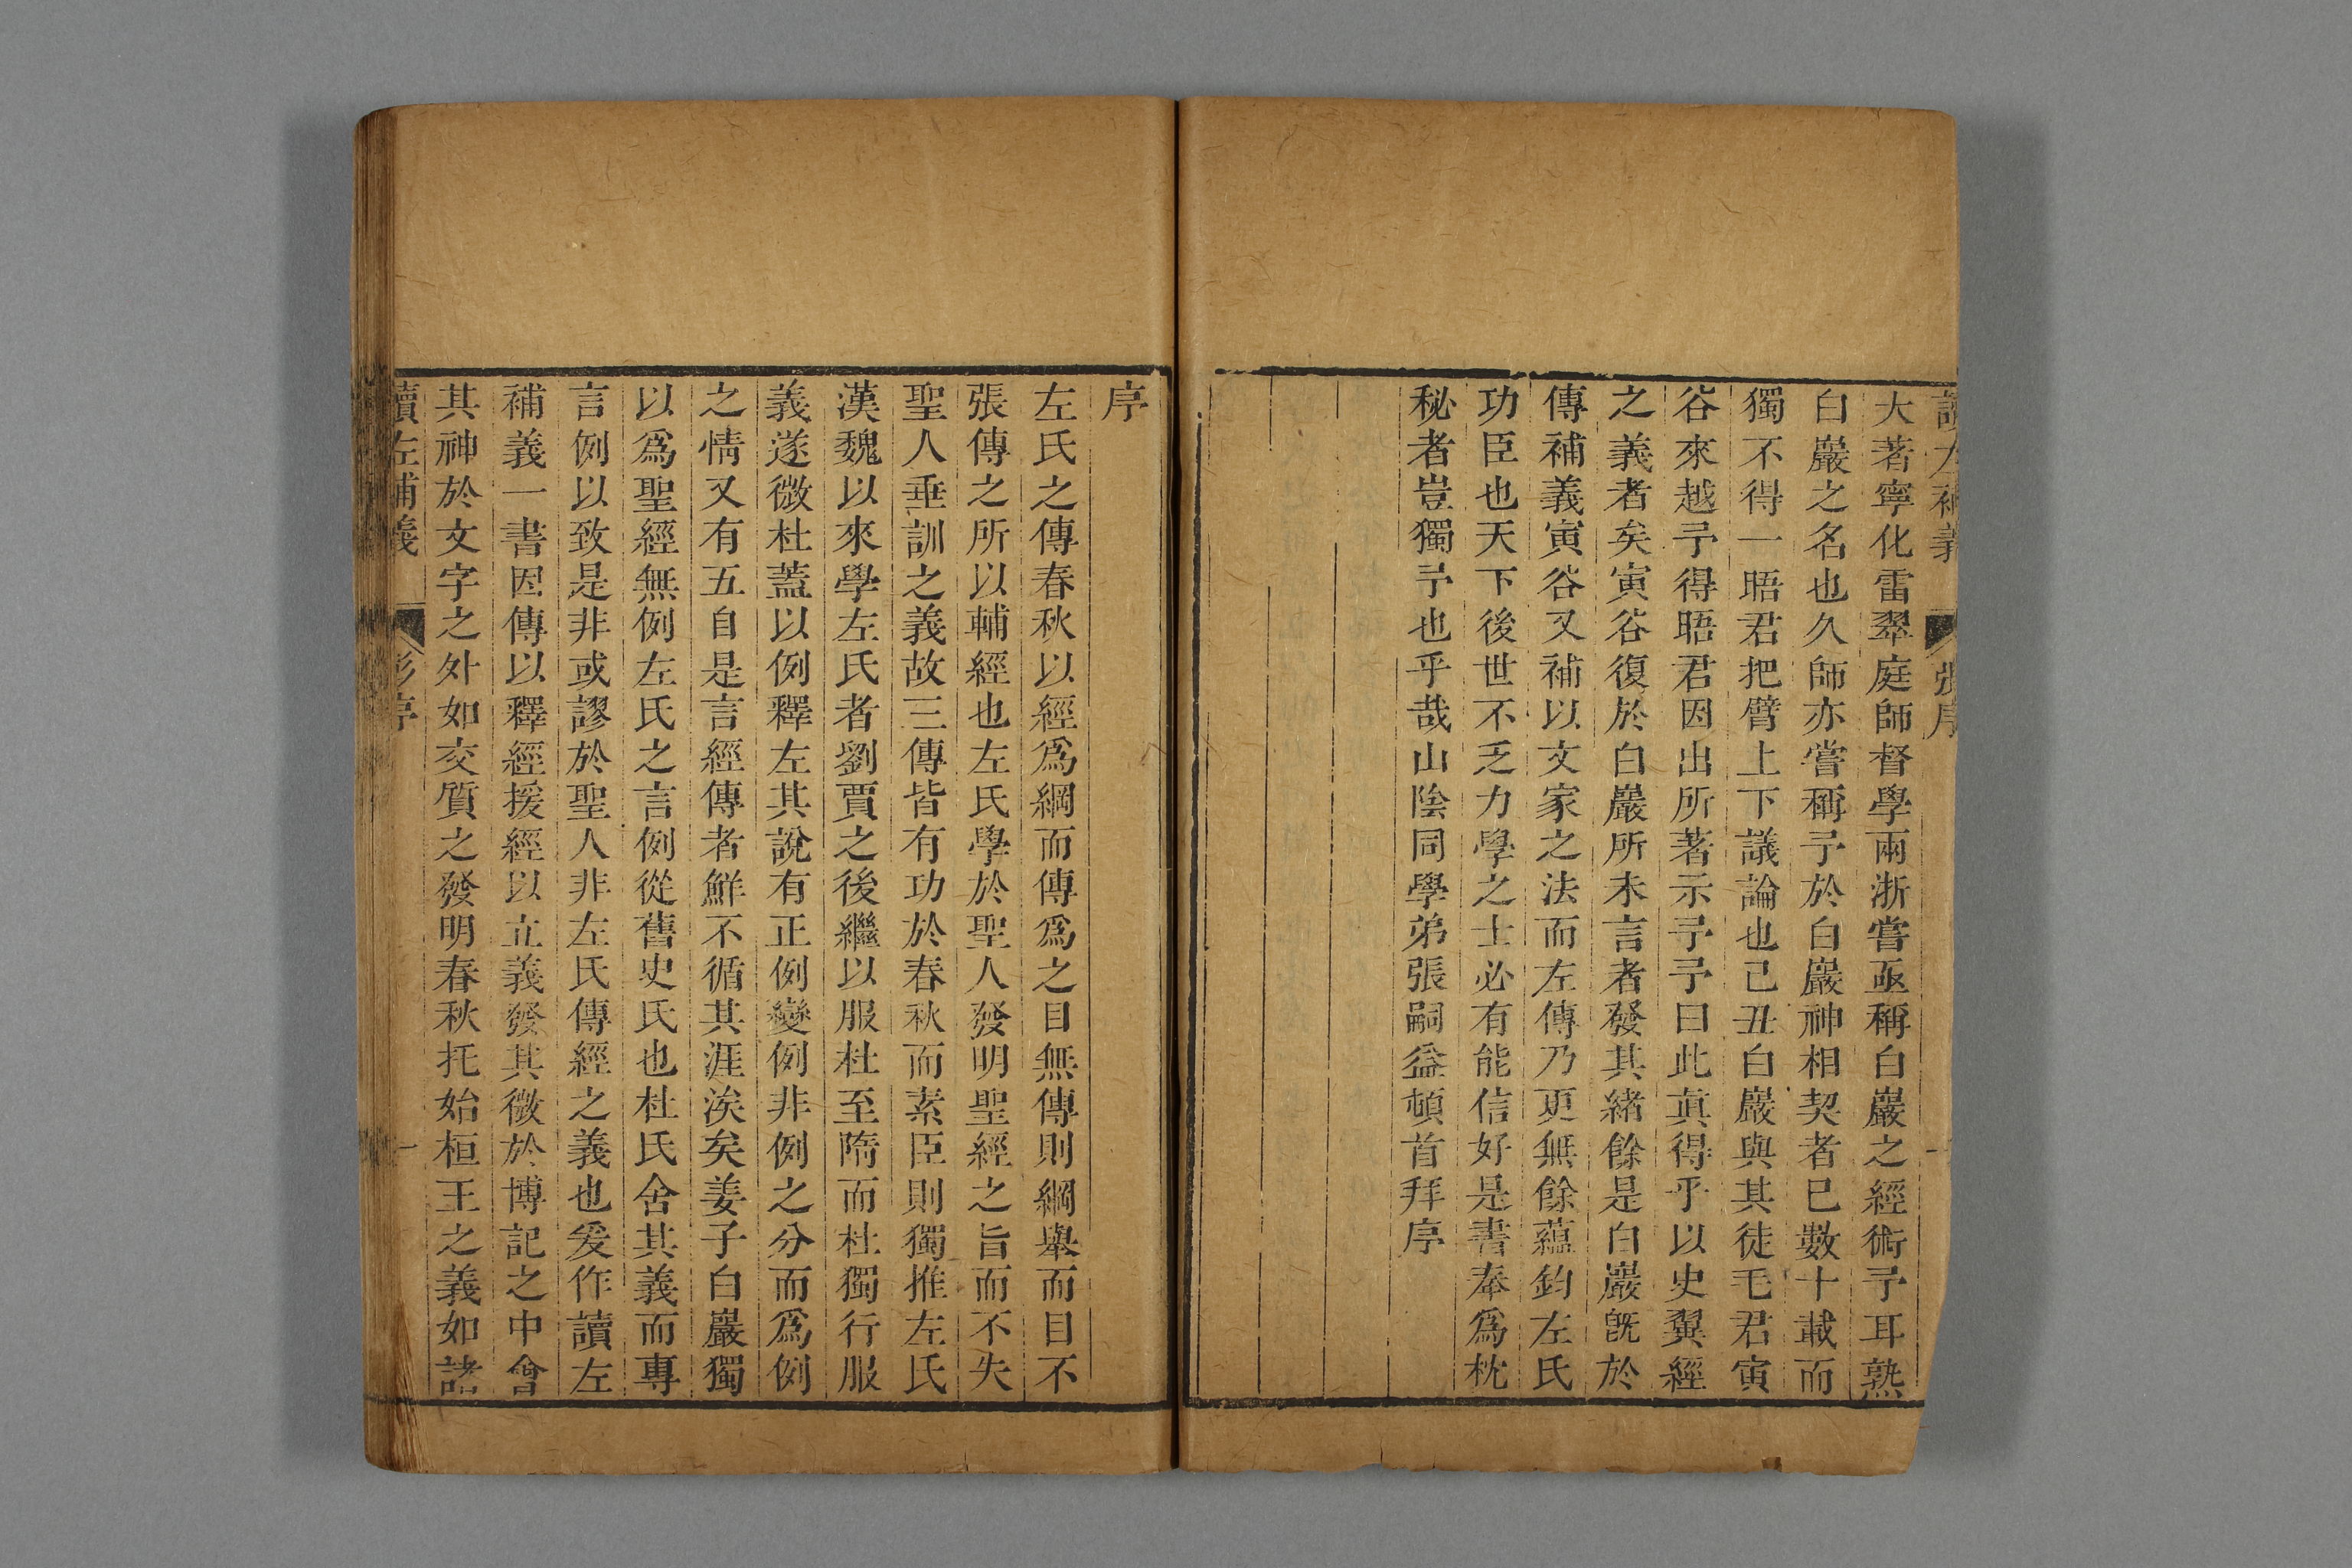 讀左補義 張序 一
大著寧化雷翠庭師督學兩浙嘗亟稱白巖之經術予耳熟
白巖之名也久師亦嘗稱予於白巖神相契者已數十載而
獨不得一晤君把臂上下議論也己丑白巖與其徒毛君寅
谷來越予得晤君因出所著示予予曰此眞得乎以史翼經
之義者矣寅谷復於白巖所未言者發其緒餘是白巖旣於
傳補義寅谷又補以文家之法而左傳乃更無餘蘊鈞左氏
功臣也天下後世不乏力學之士必有能信好是書奉爲枕
秘者豈獨予也乎哉山陰同學弟張嗣益頓首拜序
序
左氏之傳春秋以經爲綱而傳爲之目無傳則綱舉而目不
張傳之所以輔經也左氏學於聖人發明聖經之旨而不失
聖人垂訓之義故三傳皆有功於春秋而素臣則獨推左氏
漢魏以來學左氏者劉賈之後繼以服杜至隋而杜獨行服
義遂微杜蓋以例釋左其說有正例變例非例之分而爲例
之情又有五自是言經傳者鮮不循其涯涘矣姜子白巖獨
以爲聖經無例左氏之言例從舊史氏也杜氏舍其義而專
言例以致是非或謬於聖人非左氏傳經之義也爰作讀左
補義一書因傳以釋經援經以立義發其微於博記之中會
其神於文字之外如交質之發明春秋托始桓王之義如諸
讀左補義 彭序 一